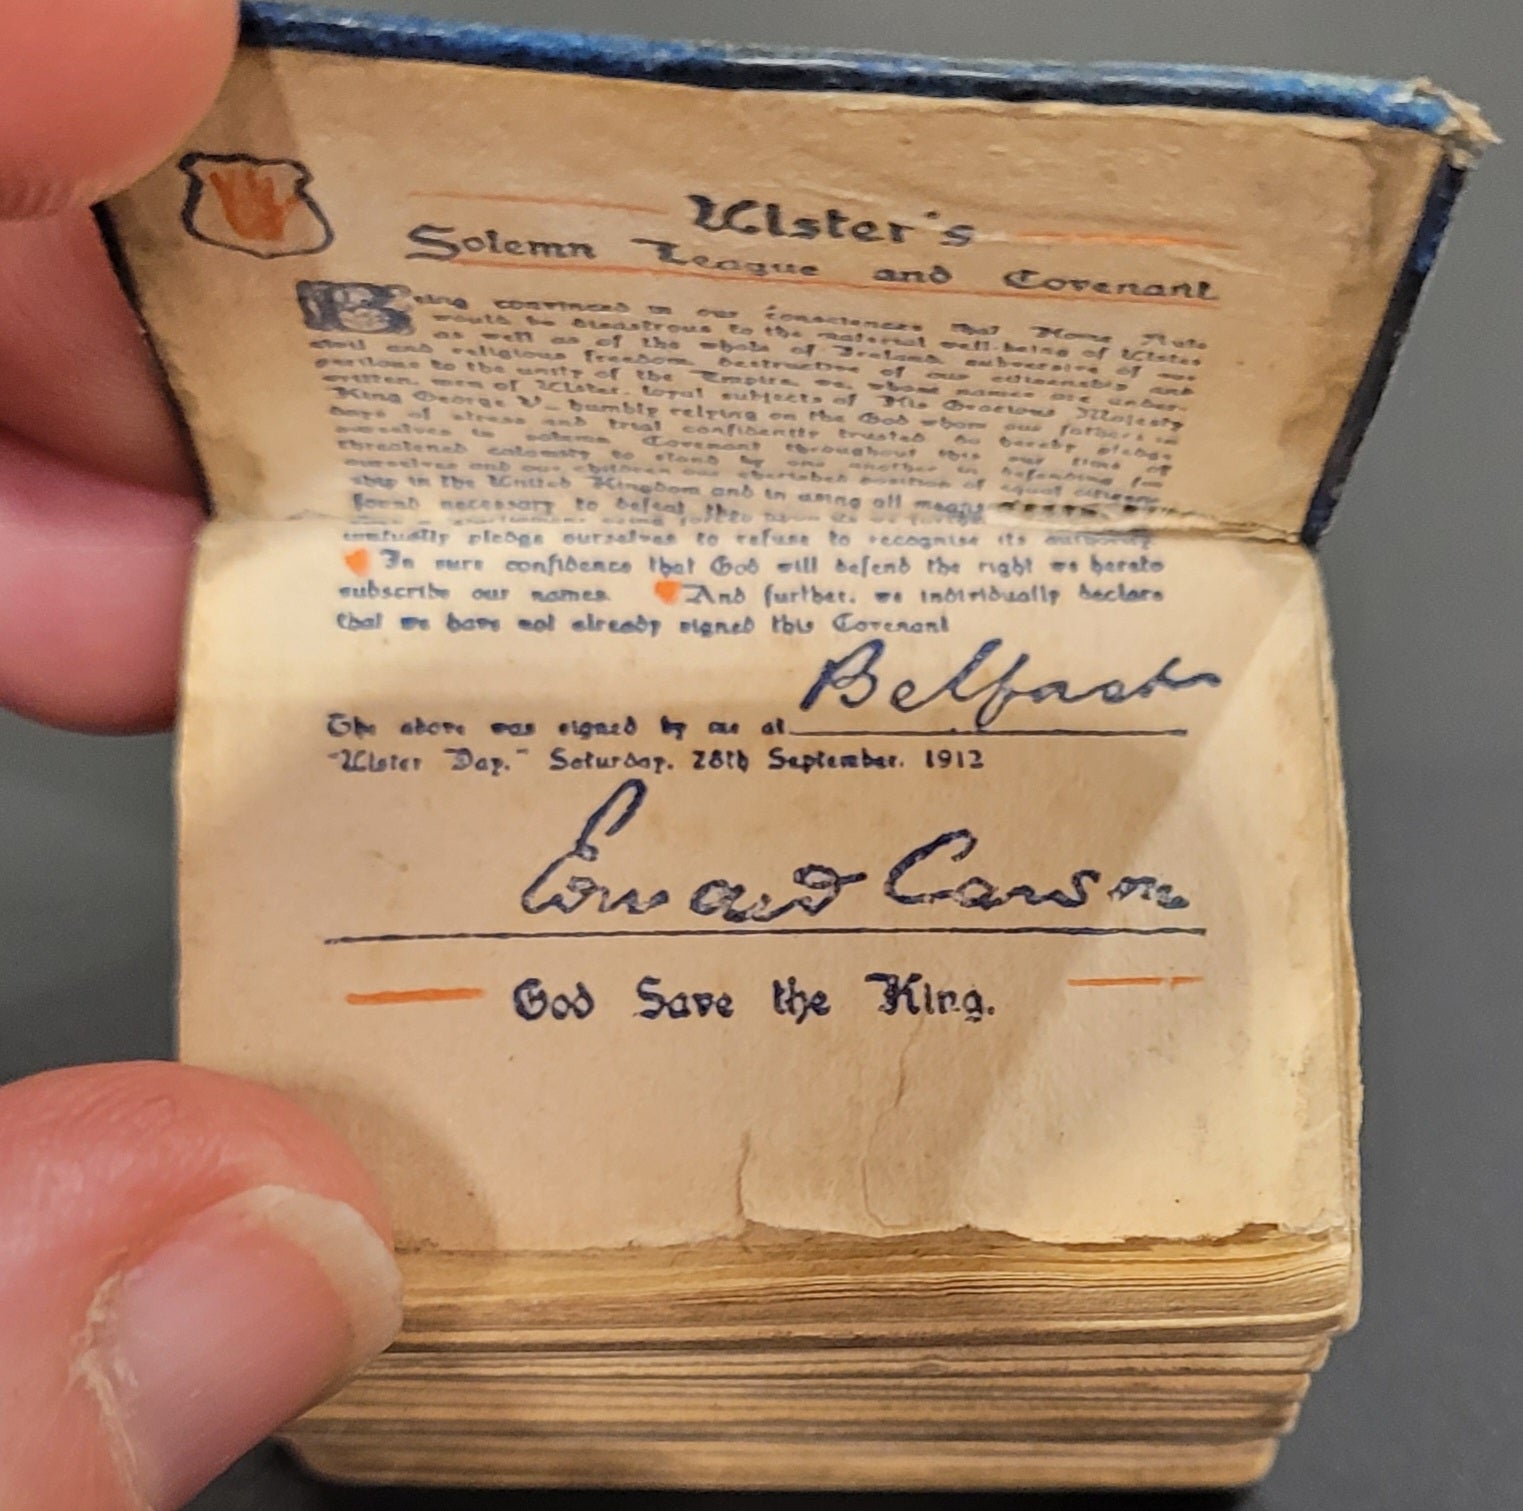 Ulster's
Solemn League and Covenant
Being convinced in our consciences that Home Rule
would be disastrous to the material well-being of Ulster
as well as of the whole of Ireland, subversive of our
civil and religious freedom, destructive of our citizenship and
perilous to the unity of the Empire, we, whose names are under-
written, men of Ulster, loyal subjects of His Gracious Majesty
King George V., humbly relying on the God whom our fathers in
days of stress and trial confidently trusted do hereby pledge
ourselves in solemn Covenant throughout this our time of
threatened calamity to stand by one another in defending for
ourselves and our children our cherished position of equal citizen-
ship in the United Kingdom and in using all means
found necessary to defeat the
mutually pledge ourselves to refuse to recognise its authority.
In sure confidence that God will defend the right we hereto
subscribe our names. And further, we individually declare
that we have not already signed this Covenant
Belfast
The above was signed by me at
"Ulster Day." Saturday. 28th September. 1912
Edward Carson
God Save the King.